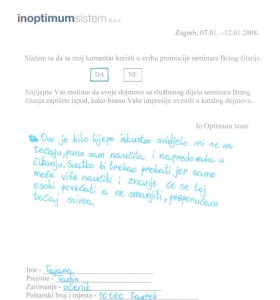 inoptimumsistem d.o.o.
Zagreb, 07.01. –12.01.2008.
Slažem se da se moj komentar koristi u svrhu promocije seminara Brzog čitanja.
DA NE
Najljepše Vas molimo da svoje dojmove sa službenog dijela seminara Brzog
čitanja zapišete ispod, kako bismo Vaše impresije uvrstili u katalog dojmova.
In Optimum team
Ovo je bilo lijepo iskustvo svidjelo mi se na
tečaju, puno sam naučila i napredovala u
čitanju. Svatko bi trebao probati jer samo
može više naučiti i znanje će se toj
osobi povećati a ne smanjiti, preporučam
tečaj svima.
Ime -
Prezime -
Zanimanje - učenik
Poštanski broj i mjesto - 10 000 Zagreb